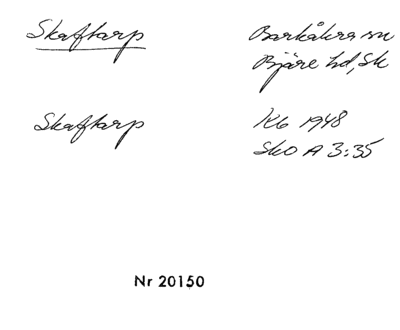 Skaftarp
Barkåkra sn
Bjäre hd, Sk
Skaftarp
Kb 1948
SkO A 3:35
Nr 20150